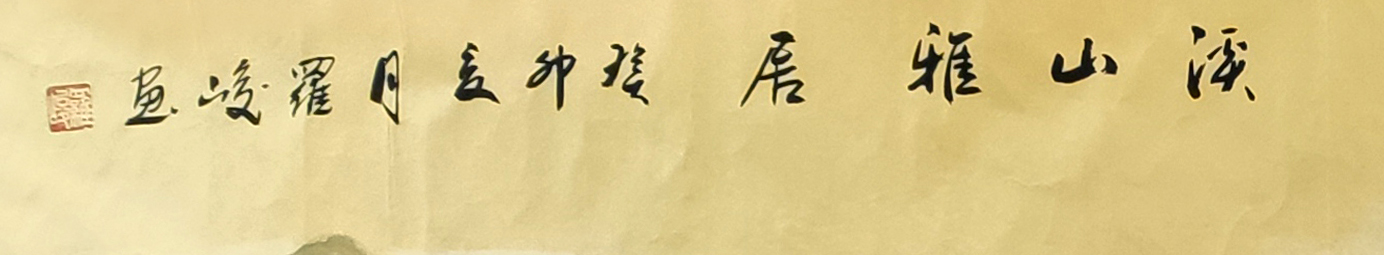 溪山雅居 癸卯夏月羅峻畫